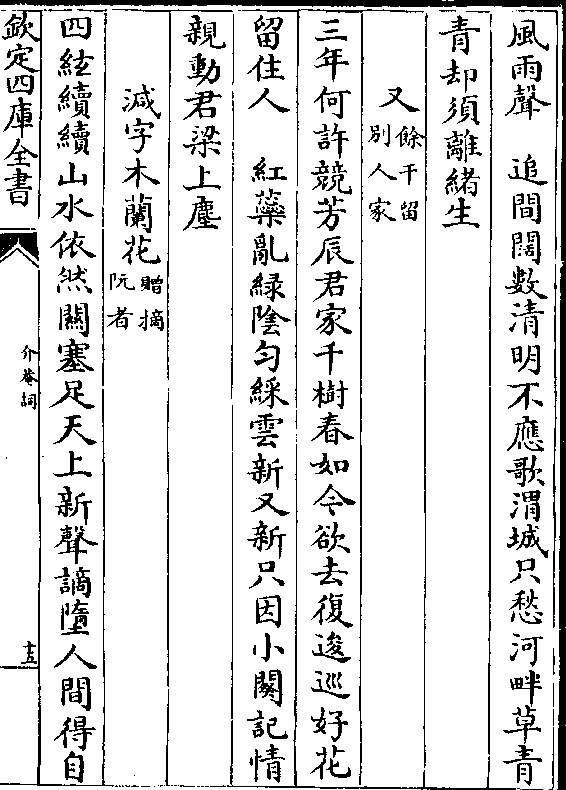 風雨聲　追間闊數清明不應歌渭城只愁河畔草青
青却須離緒生
又餘干留
別人家
三年何許競芳辰君家千樹春如今欲去復逡巡好花
留住人　紅蘂亂緑陰勻綵雲新又新只因小闋記情
親動君梁上塵
減字木蘭花贈摘
阮者
四絃續續山水依然關塞足天上新聲謫墮人間得自
欽定四庫全書
介菴詞
十五